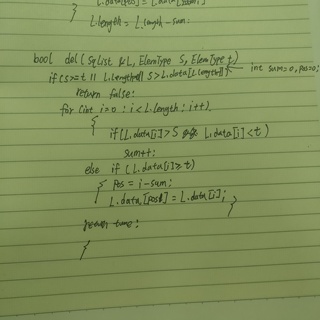 }
L.length = L.length - sum;
bool del (SqList &L, ElemType S, ElemType t)
if (s>=t || L.length || S>L.data[L.length])
int sum=0, pos=0;
return false;
for (int i=0; i<L.length; i++)
{
if (L.data[i]>S && L.data[i]<t)
sum++;
else if (L.data[i]≥t)
{ pos = i-sum;
L.data[pos] = L.data[i];
}
return true;
}